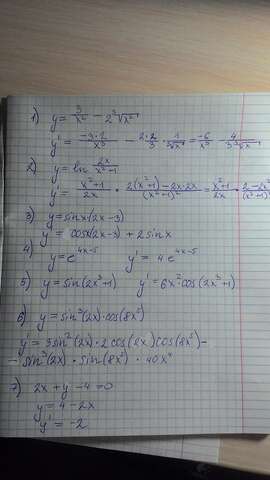 1) y = 3/x² - 2 ∛x²
y' = -3·2/x³ - 2·2/3 · 1/∛x = -6/x³ - 4/3∛x
2) y = ln 2x/x²+1
y' = x²+1/2x · 2(x²+1)-2x·2x/(x²+1)² = x²+1/2x · 2-2x²/(x²+1)²
3) y = sinx·(2x-3)
y' = cosx(2x-3) + 2sinx
4) y = e^4x-5 y' = 4e^4x-5
5) y = sin(2x³+1) y' = 6x²cos(2x³+1)
6) y = sin³(2x)·cos(8x⁵)
y' = 3sin²(2x)·2cos(2x)cos(8x⁵) -
- sin³(2x)·sin(8x⁵)·40x⁴
7) 2x + y - 4 = 0
y = 4 - 2x
y' = -2